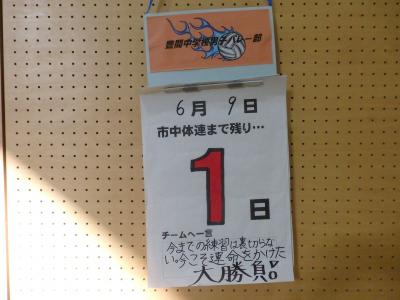 豊間中学校男子バレー部
6月9日
市中体連まで残り…
1日
チームへ一言
今までの練習は裏切らな
い。今こそ運命をかけた
大勝負!